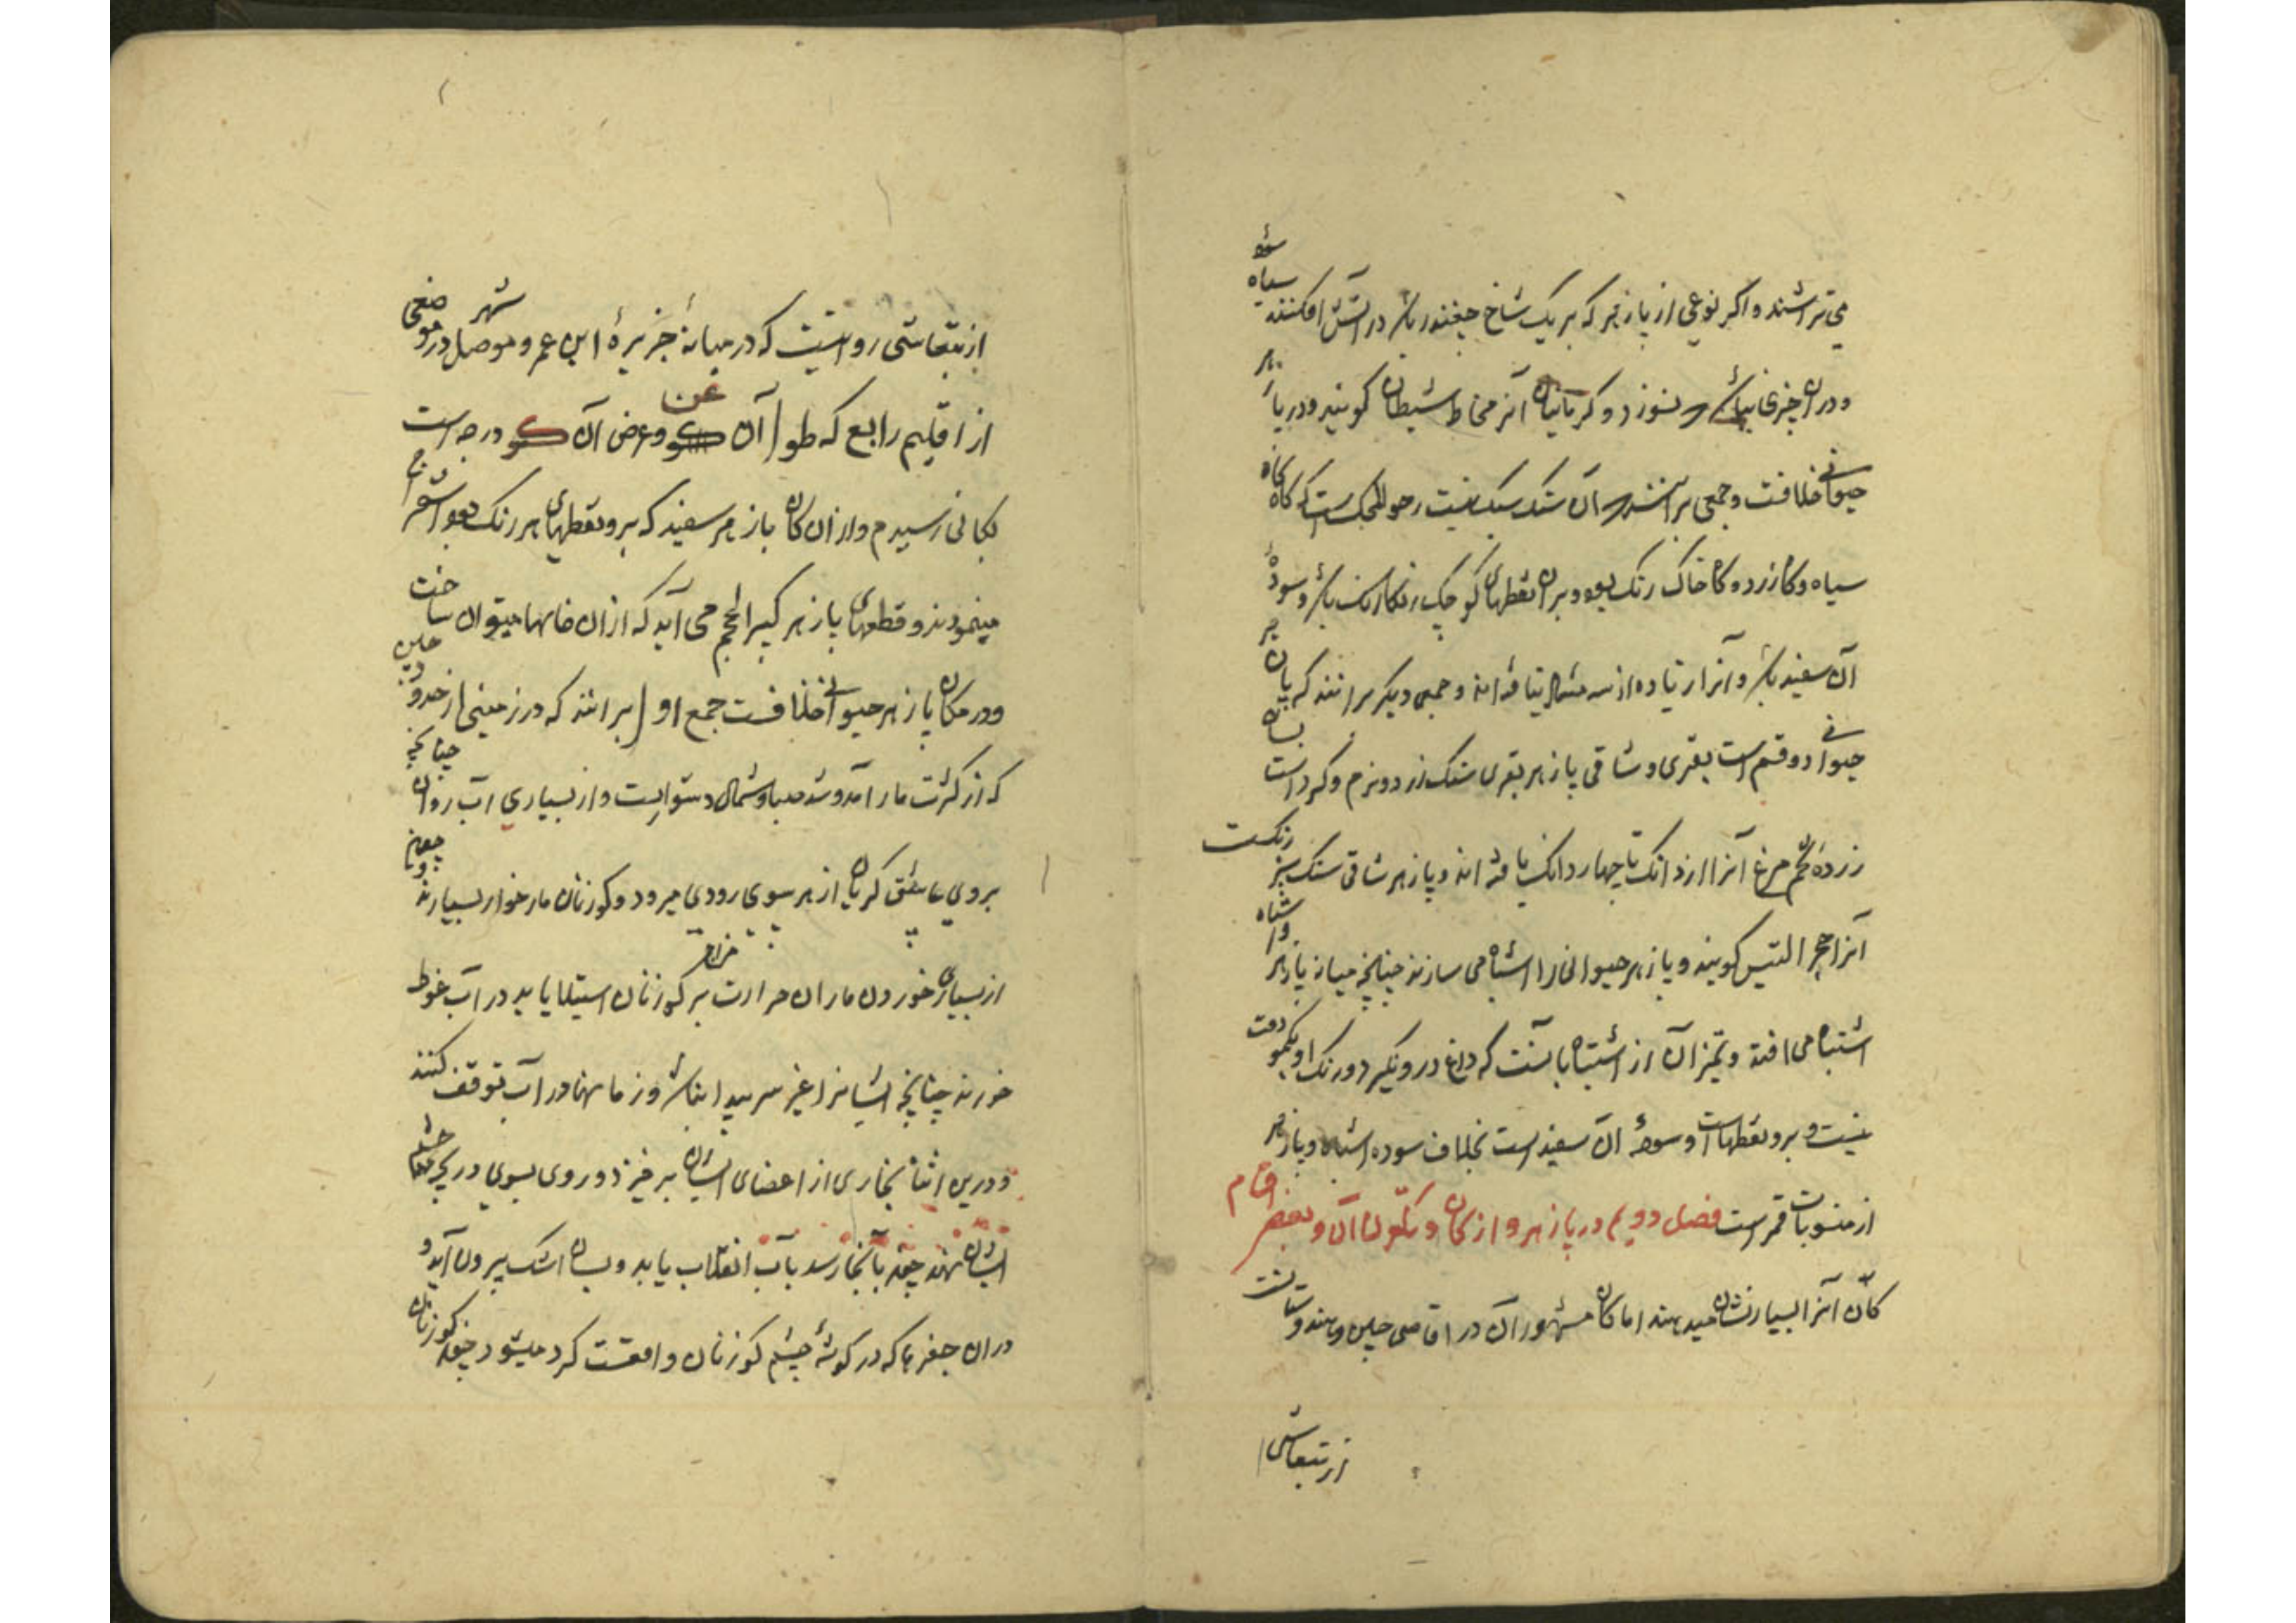 می تراشند و اکر نوعی از پازهر که بر یک شاخ چغندر باشد در آتش افکنند سیاه شود
و در ان چیزی نباشد بسوزد و کرمانیان آنرا مخاط شیطان کویند و در پازهر
حیوانی خلافست و جمعی برانند آن سنک سبک نیست رخو للحکست که کاه
سیاه و کاه زرد و کاه خاک رنک بود و بر ان نقطهای کوچک باشد و سوده
آن سفید باشد و آنرا زیاده از سه مثقال نیافته اند و جمعی دیکر برانند که پازهر
حیوانی دو قسم است بقری و شاتی پازهر بقری سنک زرد و نرم و کرد است بسان
زرده تخم مرغ آنرا از دانک تا چهار دانک یافته اند و پازهر شاتی سنک سبز رنکست
آنرا حجر التیس کویند و پازهر حیوانی را اشباه می سازند چنانچه میان پازهر و اشباه
اشتباه می افتد و تمیز آن از اشباه بانست که داغ در و نکیرد و رنک او بکمودت
نیست و برو نقطهاست و سوده آن سفید است بخلاف سوده اشباه و پازهر
از منسوبات قمرست فصل دویم در پازهر و از کان و تکون آن و بعضی اقسام
کان آنرا بسیار نشان میدهند اما کان مشهور آن در اقاصی چین و هند و ستانست
از تیفاشی
از تیفاشی روایتست که در میانهٔ جزیرهٔ ابن عمر و شهر موصل در موضعی
از اقلیم رابع که طول آن و عرض آن درجه است
بکانی رسیدم و از ان کان پازهر سفید که برو نقطهای هر رنک بود استخراج
مینمودند و قطعهای پازهر کبیر الحجم می آید که از ان خانها میتوان ساخت
و در مکان پازهر حیوانی خلافست جمع اول برانند که در زمینی از حدود چین
که از کثرت مار آمد و شد صبا و شمال دشوارست و از بسیاری آب روان چنانچه
بروی عاشق کریان از هر سوی رودی میرود و کوزنان مار خوار بسیارند و چون
از بسیاری خوردن ماران حرارت بر مزاج کوزنان استیلا یابد در آب غوطه
خورند چنانچه ایشانرا غیر سر پیدا نباشد و زمانها در آب توقف کنند
و درین اثنا بخاری از اعضای ایشان بر خیزد و روی بسوی دریچه چشم
ایشان نهد چون آن بخار رسد بآب انقلاب یابد و بسان اشک بیرون آید و
در ان حفرها که در کوشهٔ چشم کوزنان واقعست کرد میشود چون کوزنان